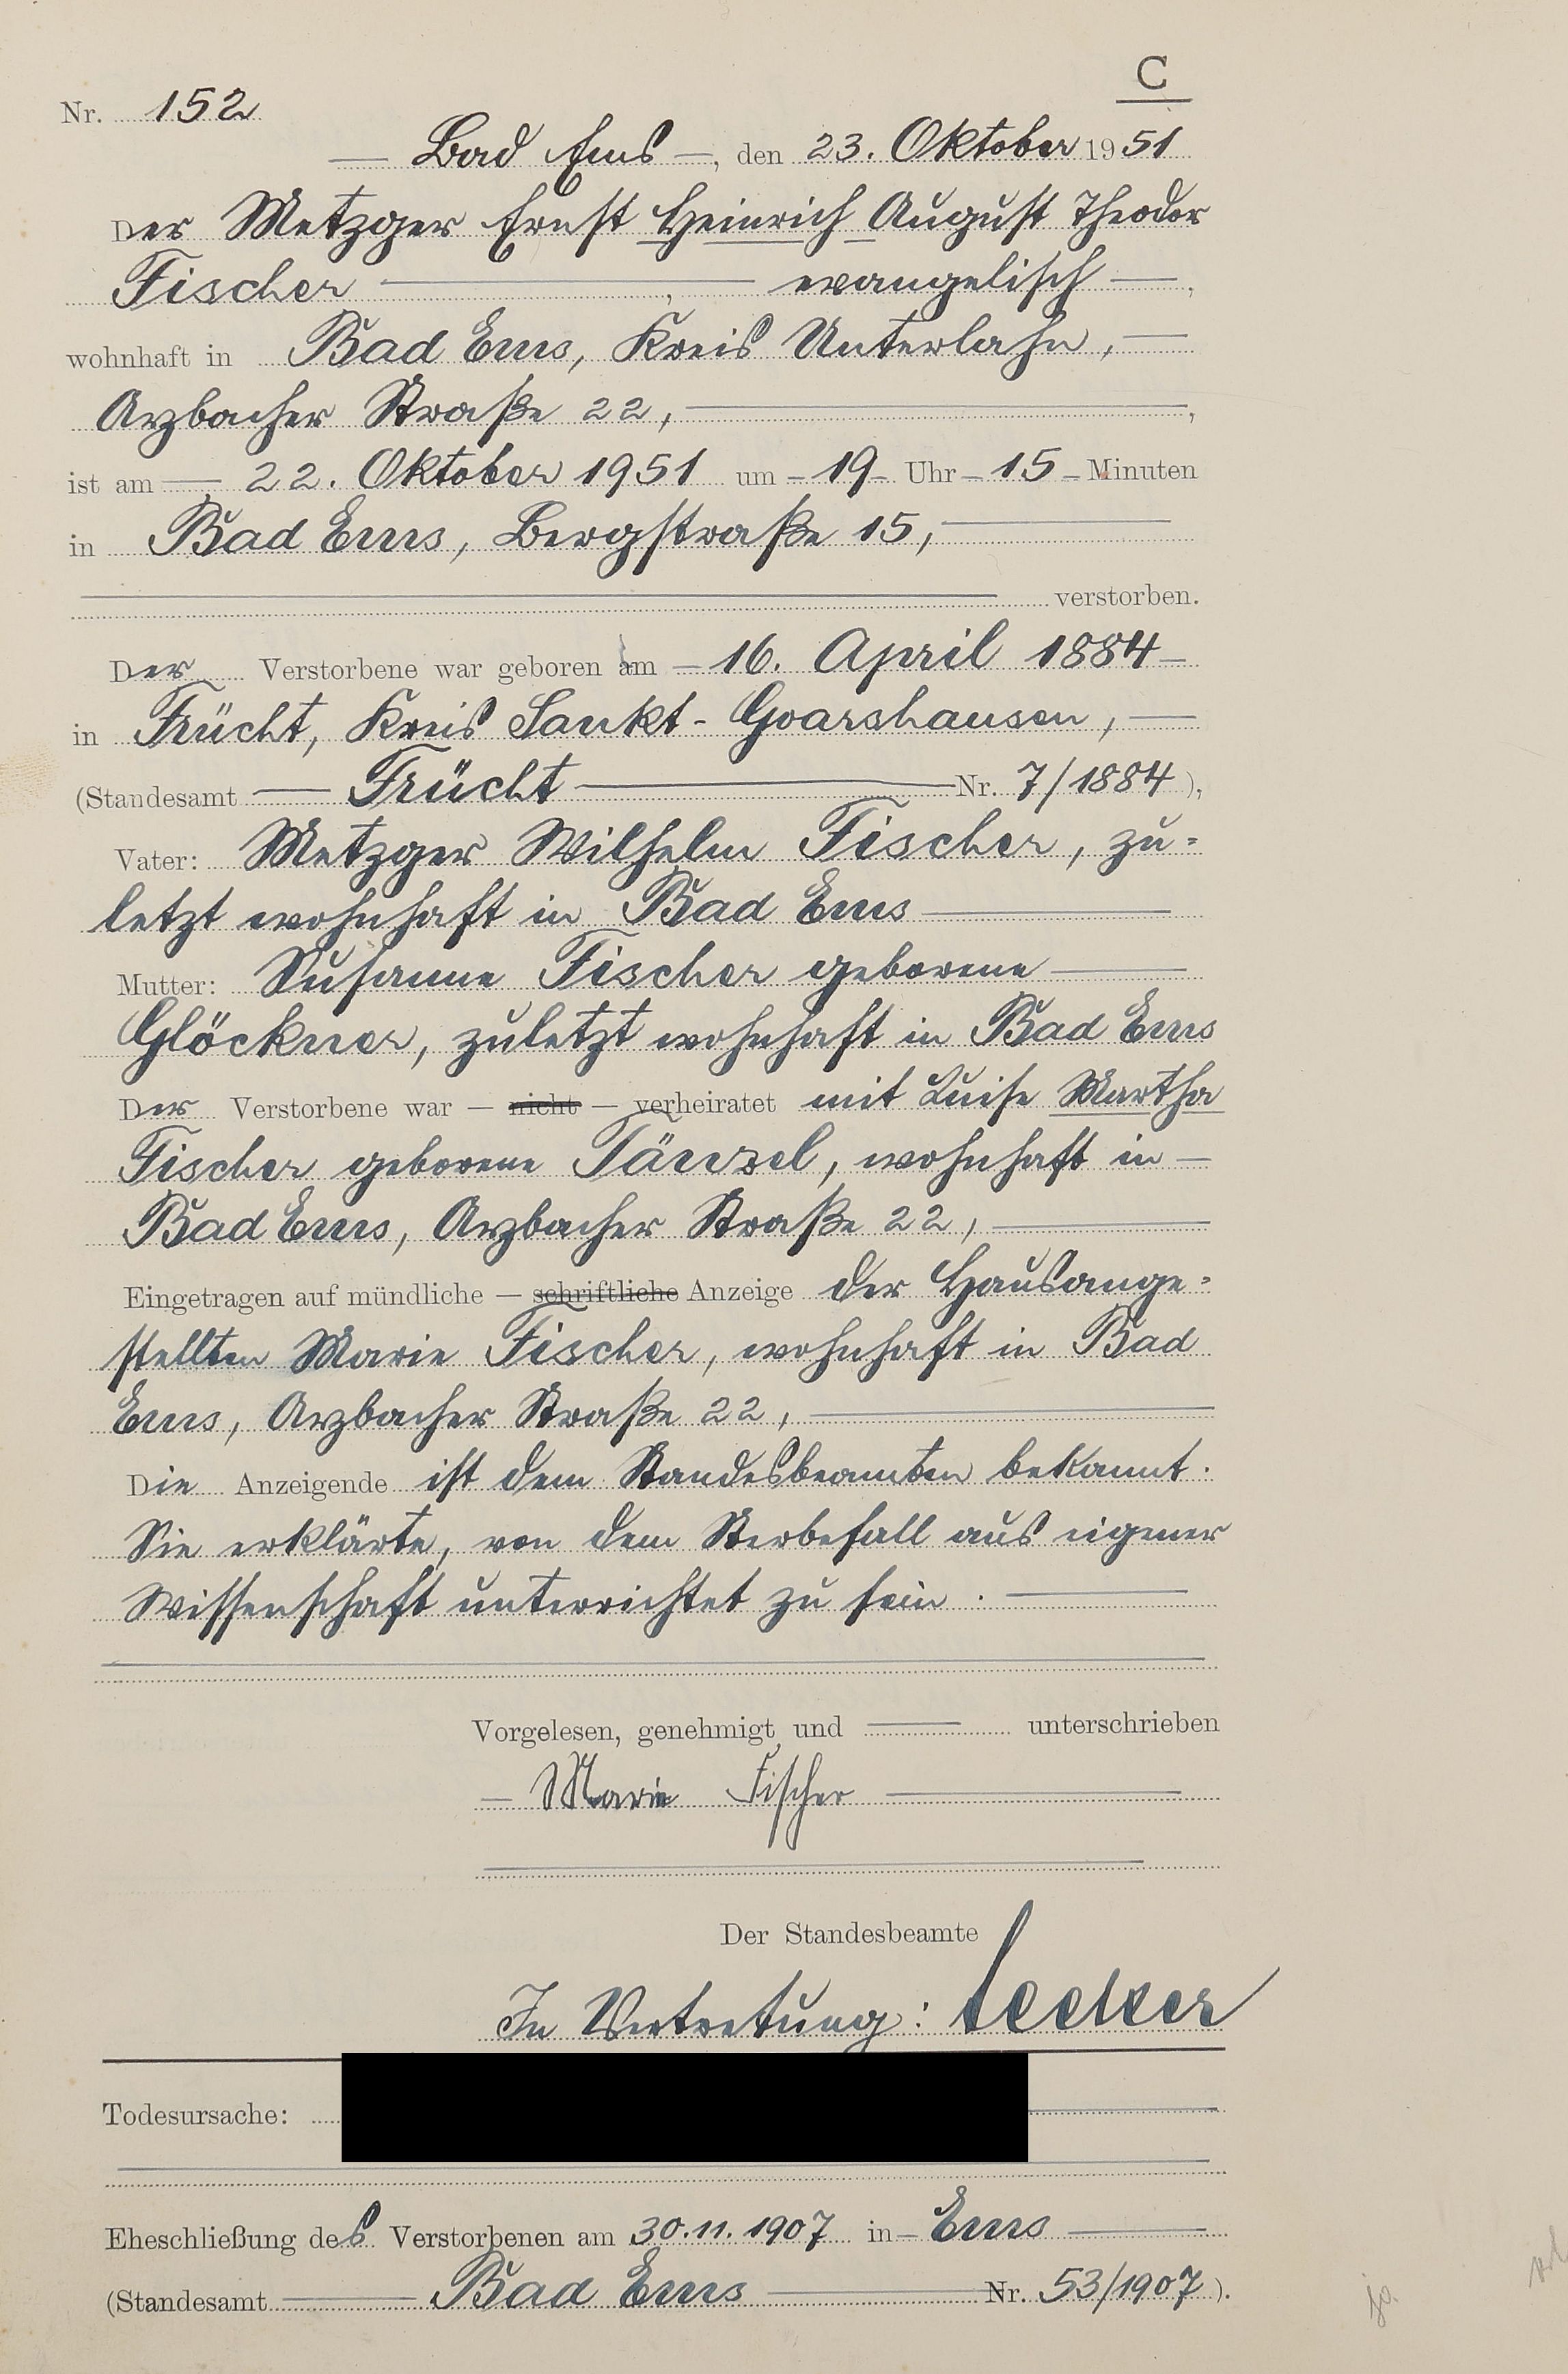 C
Nr. 152
— Bad Ems —, den 23. Oktober 1951
Der Metzger Ernst Heinrich August Theodor
Fischer —, — evangelisch —,
wohnhaft in Bad Ems, Kreis Unterlahn, —
Arzbacher Straße 22, —,
ist am — 22. Oktober 1951 um - 19 - Uhr - 15 - Minuten
in Bad Ems, Bergstraße 15, —
— verstorben.
Der Verstorbene war geboren am - 16. April 1884 -
in Frücht, Kreis Sankt-Goarshausen, —
(Standesamt — Frücht — Nr. 7/1884),
Vater: Metzger Wilhelm Fischer, zu=
letzt wohnhaft in Bad Ems —
Mutter: Susanne Fischer geborene —
Glöckner, zuletzt wohnhaft in Bad Ems
Der Verstorbene war — nicht — verheiratet mit Luise Martha
Fischer geborene Tänzel, wohnhaft in —
Bad Ems, Arzbacher Straße 22, —
Eingetragen auf mündliche — schriftliche Anzeige der Hausange=
stellten Marie Fischer, wohnhaft in Bad
Ems, Arzbacher Straße 22, —
Die Anzeigende ist dem Standesbeamten bekannt.
Sie erklärte, von dem Sterbefall aus eigener
Wissenschaft unterrichtet zu sein. —
Vorgelesen, genehmigt und — unterschrieben
— Marie Fischer —
Der Standesbeamte
In Vertretung:
Todesursache:
Eheschließung des Verstorbenen am 30.11.1907 in - Ems —
(Standesamt — Bad Ems — Nr. 53/1907).